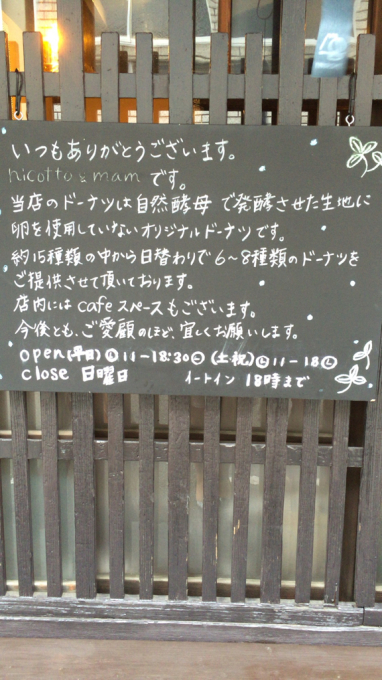 いつもありがとうございます。
nicotto & mam です。
当店のドーナツは自然酵母で発酵させた生地に
卵を使用していないオリジナルドーナツです。
約15種類の中から日替わりで6〜8種類のドーナツを
ご提供させて頂いております。
店内にはcafeスペースもございます。
今後とも、ご愛顧のほど、宜しくお願いします。
open(平日)Ⓛ11-18:30Ⓒ(土祝)Ⓛ11-18Ⓛ
close 日曜日 イートイン 18時まで